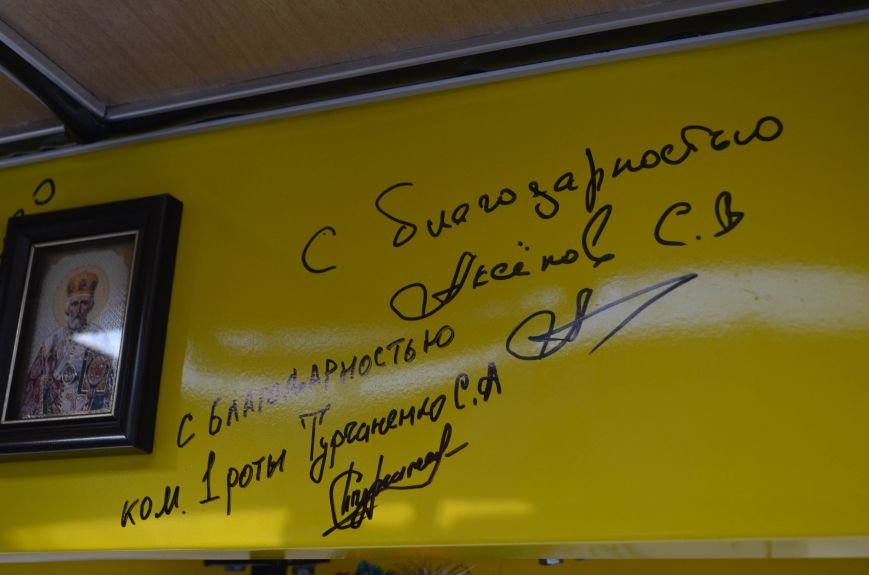 С благодарностью
Аксёнов С.В
С БЛАГОДАРНОСТЬЮ
ком. 1 роты Турчаненко С.А